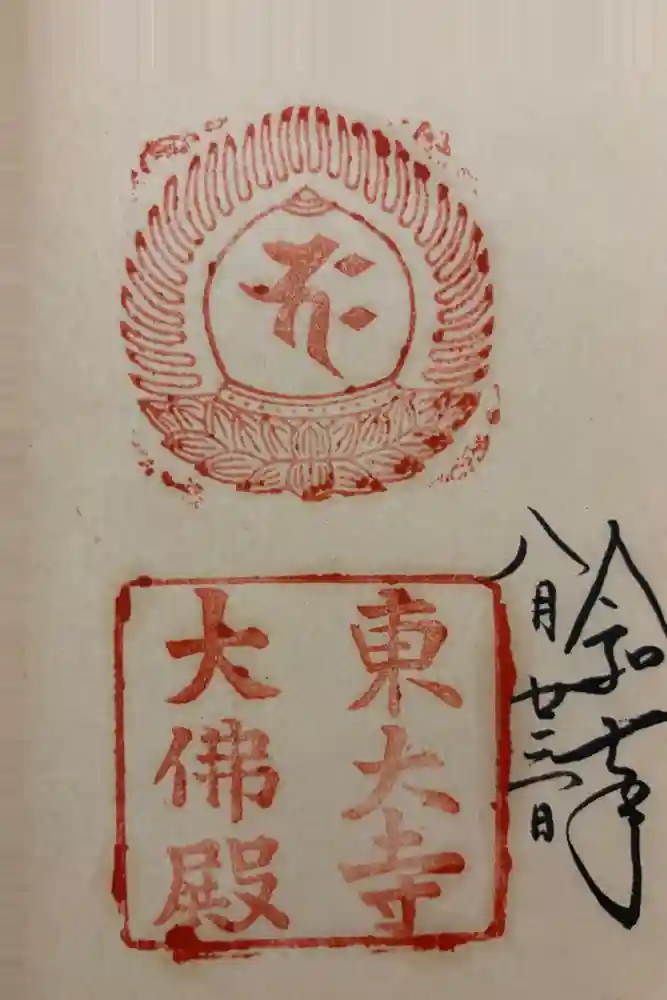 令和七年
八月廿三日
東大寺
大佛殿